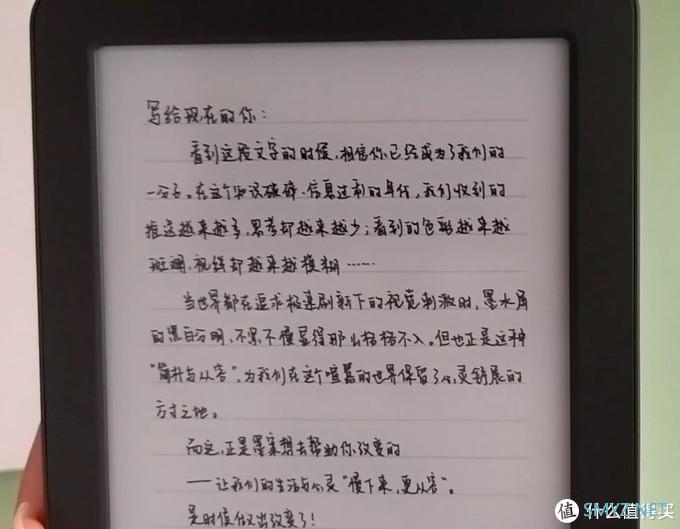 写给现在的你：
看到这段文字的时候，相信你已经成为了我们的
一分子。在这个知识破碎、信息过剩的年代，我们收到的
推送越来越多，思考却越来越少；看到的色彩越来越
斑斓，视线却越来越模糊……
当世界都在追求极速刷新下的视觉刺激时，墨水屏
的黑白分明，不紧不慢显得那么格格不入。但也正是这种
“简朴与从容”，为我们在这个喧嚣的世界保留了心灵舒展的
方寸之地。
而这，正是墨案想去帮助你改变的
——让我们的生活与心灵“慢下来，更从容”。
是时候做出改变了！
值 什么值得买
SMYZ.NET